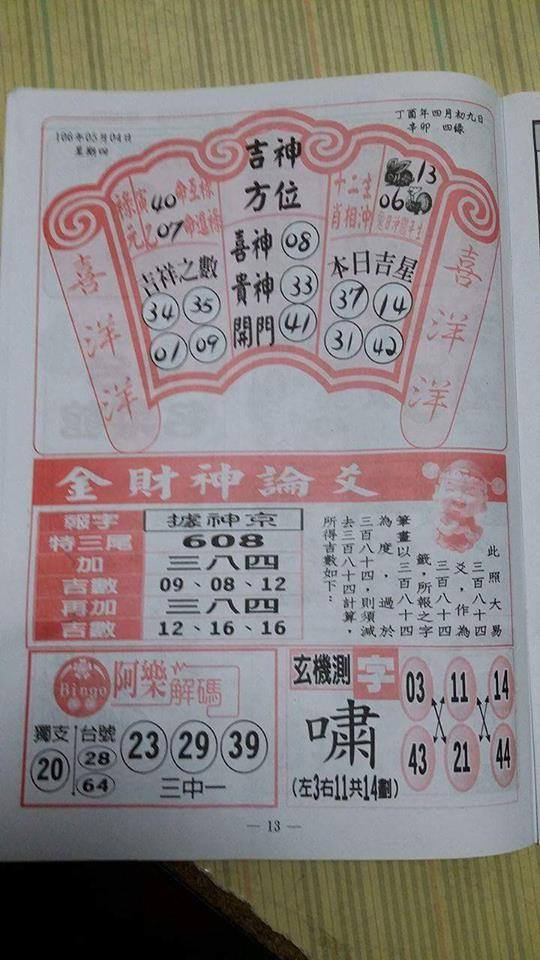 106年05月04日
星期四
丁酉年四月初九日
辛卯 四綠
吉神
方位
祿寅40命互祿
元乙07命進祿
十二生
肖相沖
13
06
喜神 08
貴神 33
開門 41
吉祥之數
34 35
01 09
本日吉星
37 14
31 42
喜洋洋
喜洋洋
金財神論爻
報字 據神京
特三尾 608
加 三八四
吉數 09、08、12
再加 三八四
吉數 12、16、16
此照大易
三百八十四
爻，作為
三百八十四
籤，所報之字
筆畫以三百八十四
為度，過於
三百八十四，則須減
去三百八十四計算，
所得吉數如下：
Bingo 阿樂解碼
獨支 台號
20 28 64
23 29 39
三中一
玄機測字
嘯
(左3右11共14劃)
03 11 14
43 21 44
— 13 —